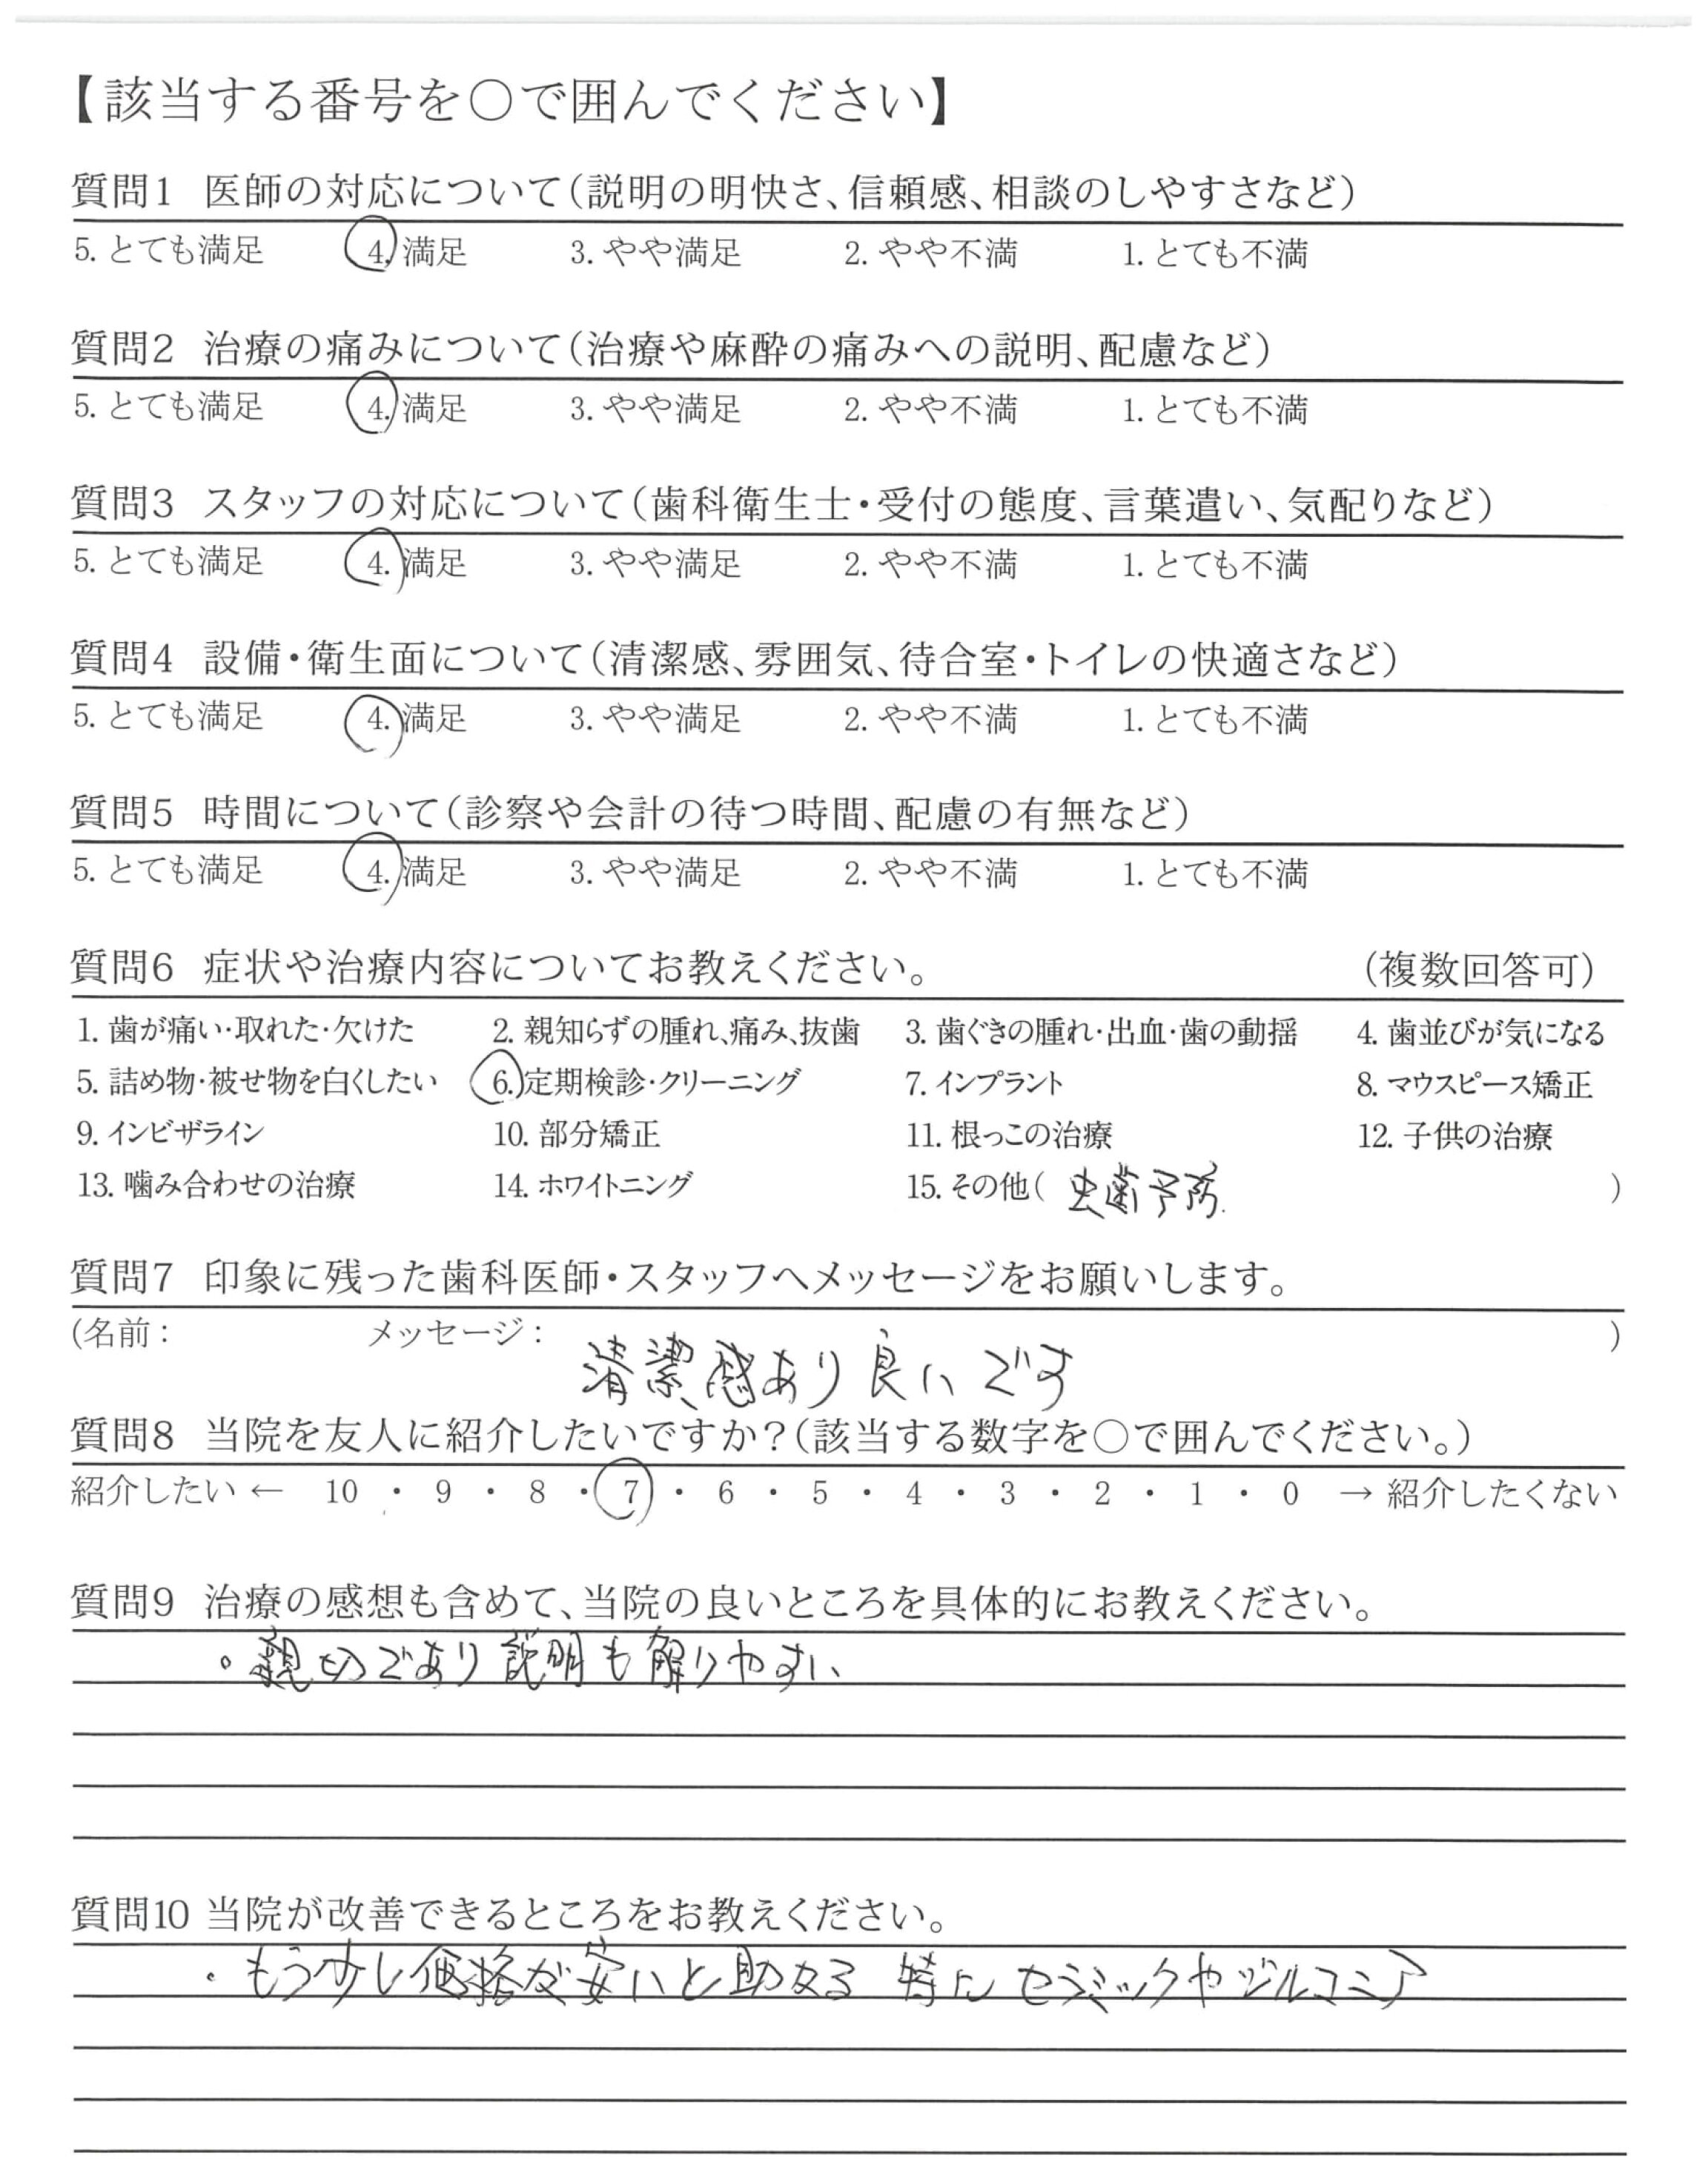 【該当する番号を○で囲んでください】
質問1 医師の対応について(説明の明快さ、信頼感、相談のしやすさなど)
5. とても満足 4. 満足 3. やや満足 2. やや不満 1. とても不満
質問2 治療の痛みについて(治療や麻酔の痛みへの説明、配慮など)
5. とても満足 4. 満足 3. やや満足 2. やや不満 1. とても不満
質問3 スタッフの対応について(歯科衛生士・受付の態度、言葉遣い、気配りなど)
5. とても満足 4. 満足 3. やや満足 2. やや不満 1. とても不満
質問4 設備・衛生面について(清潔感、雰囲気、待合室・トイレの快適さなど)
5. とても満足 4. 満足 3. やや満足 2. やや不満 1. とても不満
質問5 時間について(診察や会計の待つ時間、配慮の有無など)
5. とても満足 4. 満足 3. やや満足 2. やや不満 1. とても不満
質問6 症状や治療内容についてお教えください。 (複数回答可)
1. 歯が痛い・取れた・欠けた 2. 親知らずの腫れ、痛み、抜歯 3. 歯ぐきの腫れ・出血・歯の動揺 4. 歯並びが気になる
5. 詰め物・被せ物を白くしたい 6. 定期検診・クリーニング 7. インプラント 8. マウスピース矯正
9. インビザライン 10. 部分矯正 11. 根っこの治療 12. 子供の治療
13. 噛み合わせの治療 14. ホワイトニング 15. その他( 虫歯予防. )
質問7 印象に残った歯科医師・スタッフへメッセージをお願いします。
(名前: メッセージ: 清潔感あり良いです )
質問8 当院を友人に紹介したいですか?(該当する数字を○で囲んでください。)
紹介したい ← 10 ・ 9 ・ 8 ・ 7 ・ 6 ・ 5 ・ 4 ・ 3 ・ 2 ・ 1 ・ 0 → 紹介したくない
質問9 治療の感想も含めて、当院の良いところを具体的にお教えください。
。親切であり説明も解りやすい
質問10 当院が改善できるところをお教えください。
・もう少し価格が安いと助かる 特に セラミックやジルコニア